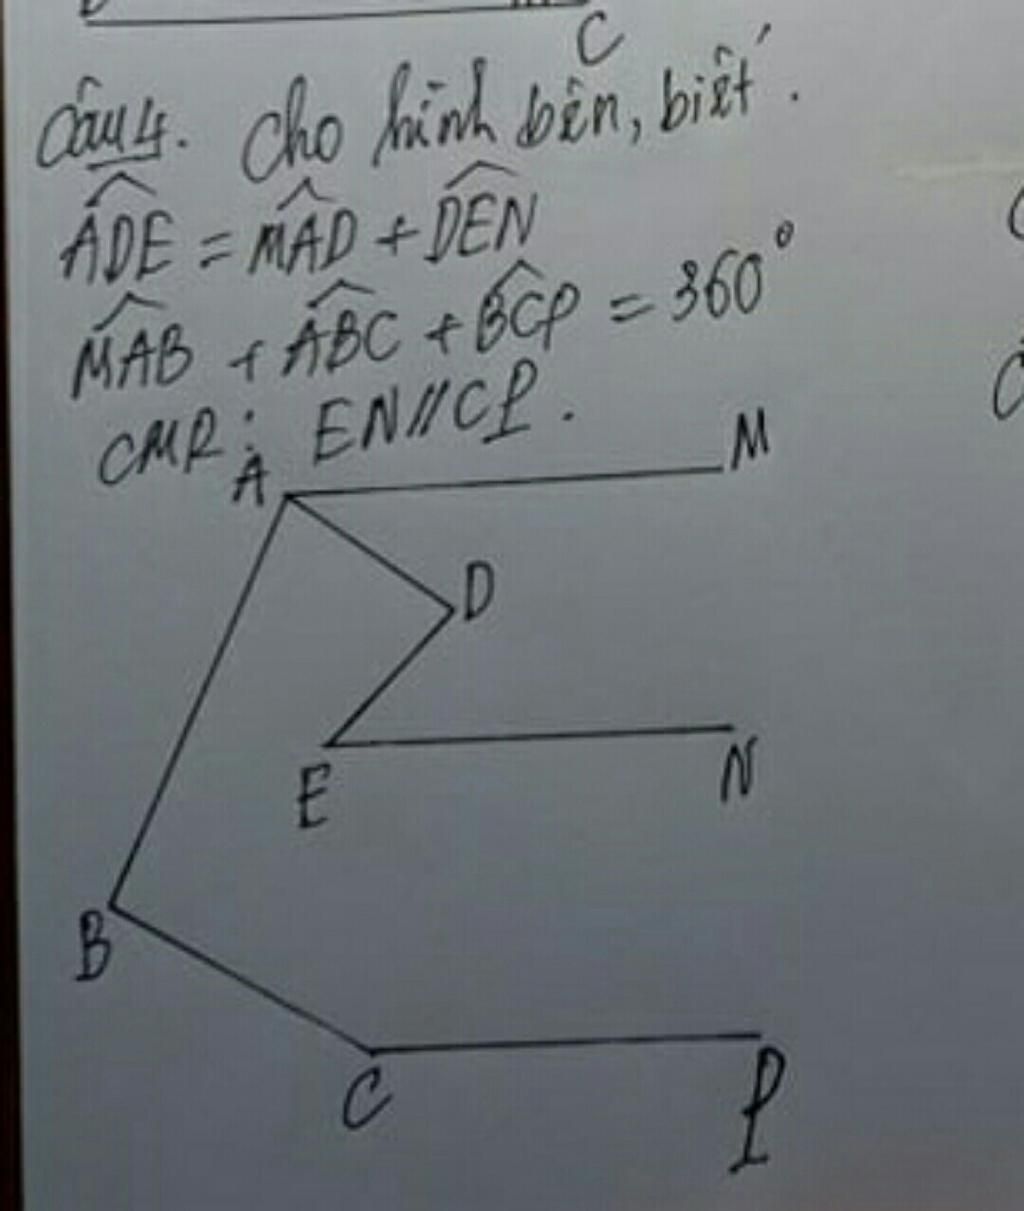 C
Câu 4. Cho hình bên, biết.
ADE = MAD + DEN
MAB + ABC + BCP = 360°
CMR: EN // CP.
A
M
D
E
N
B
C
P